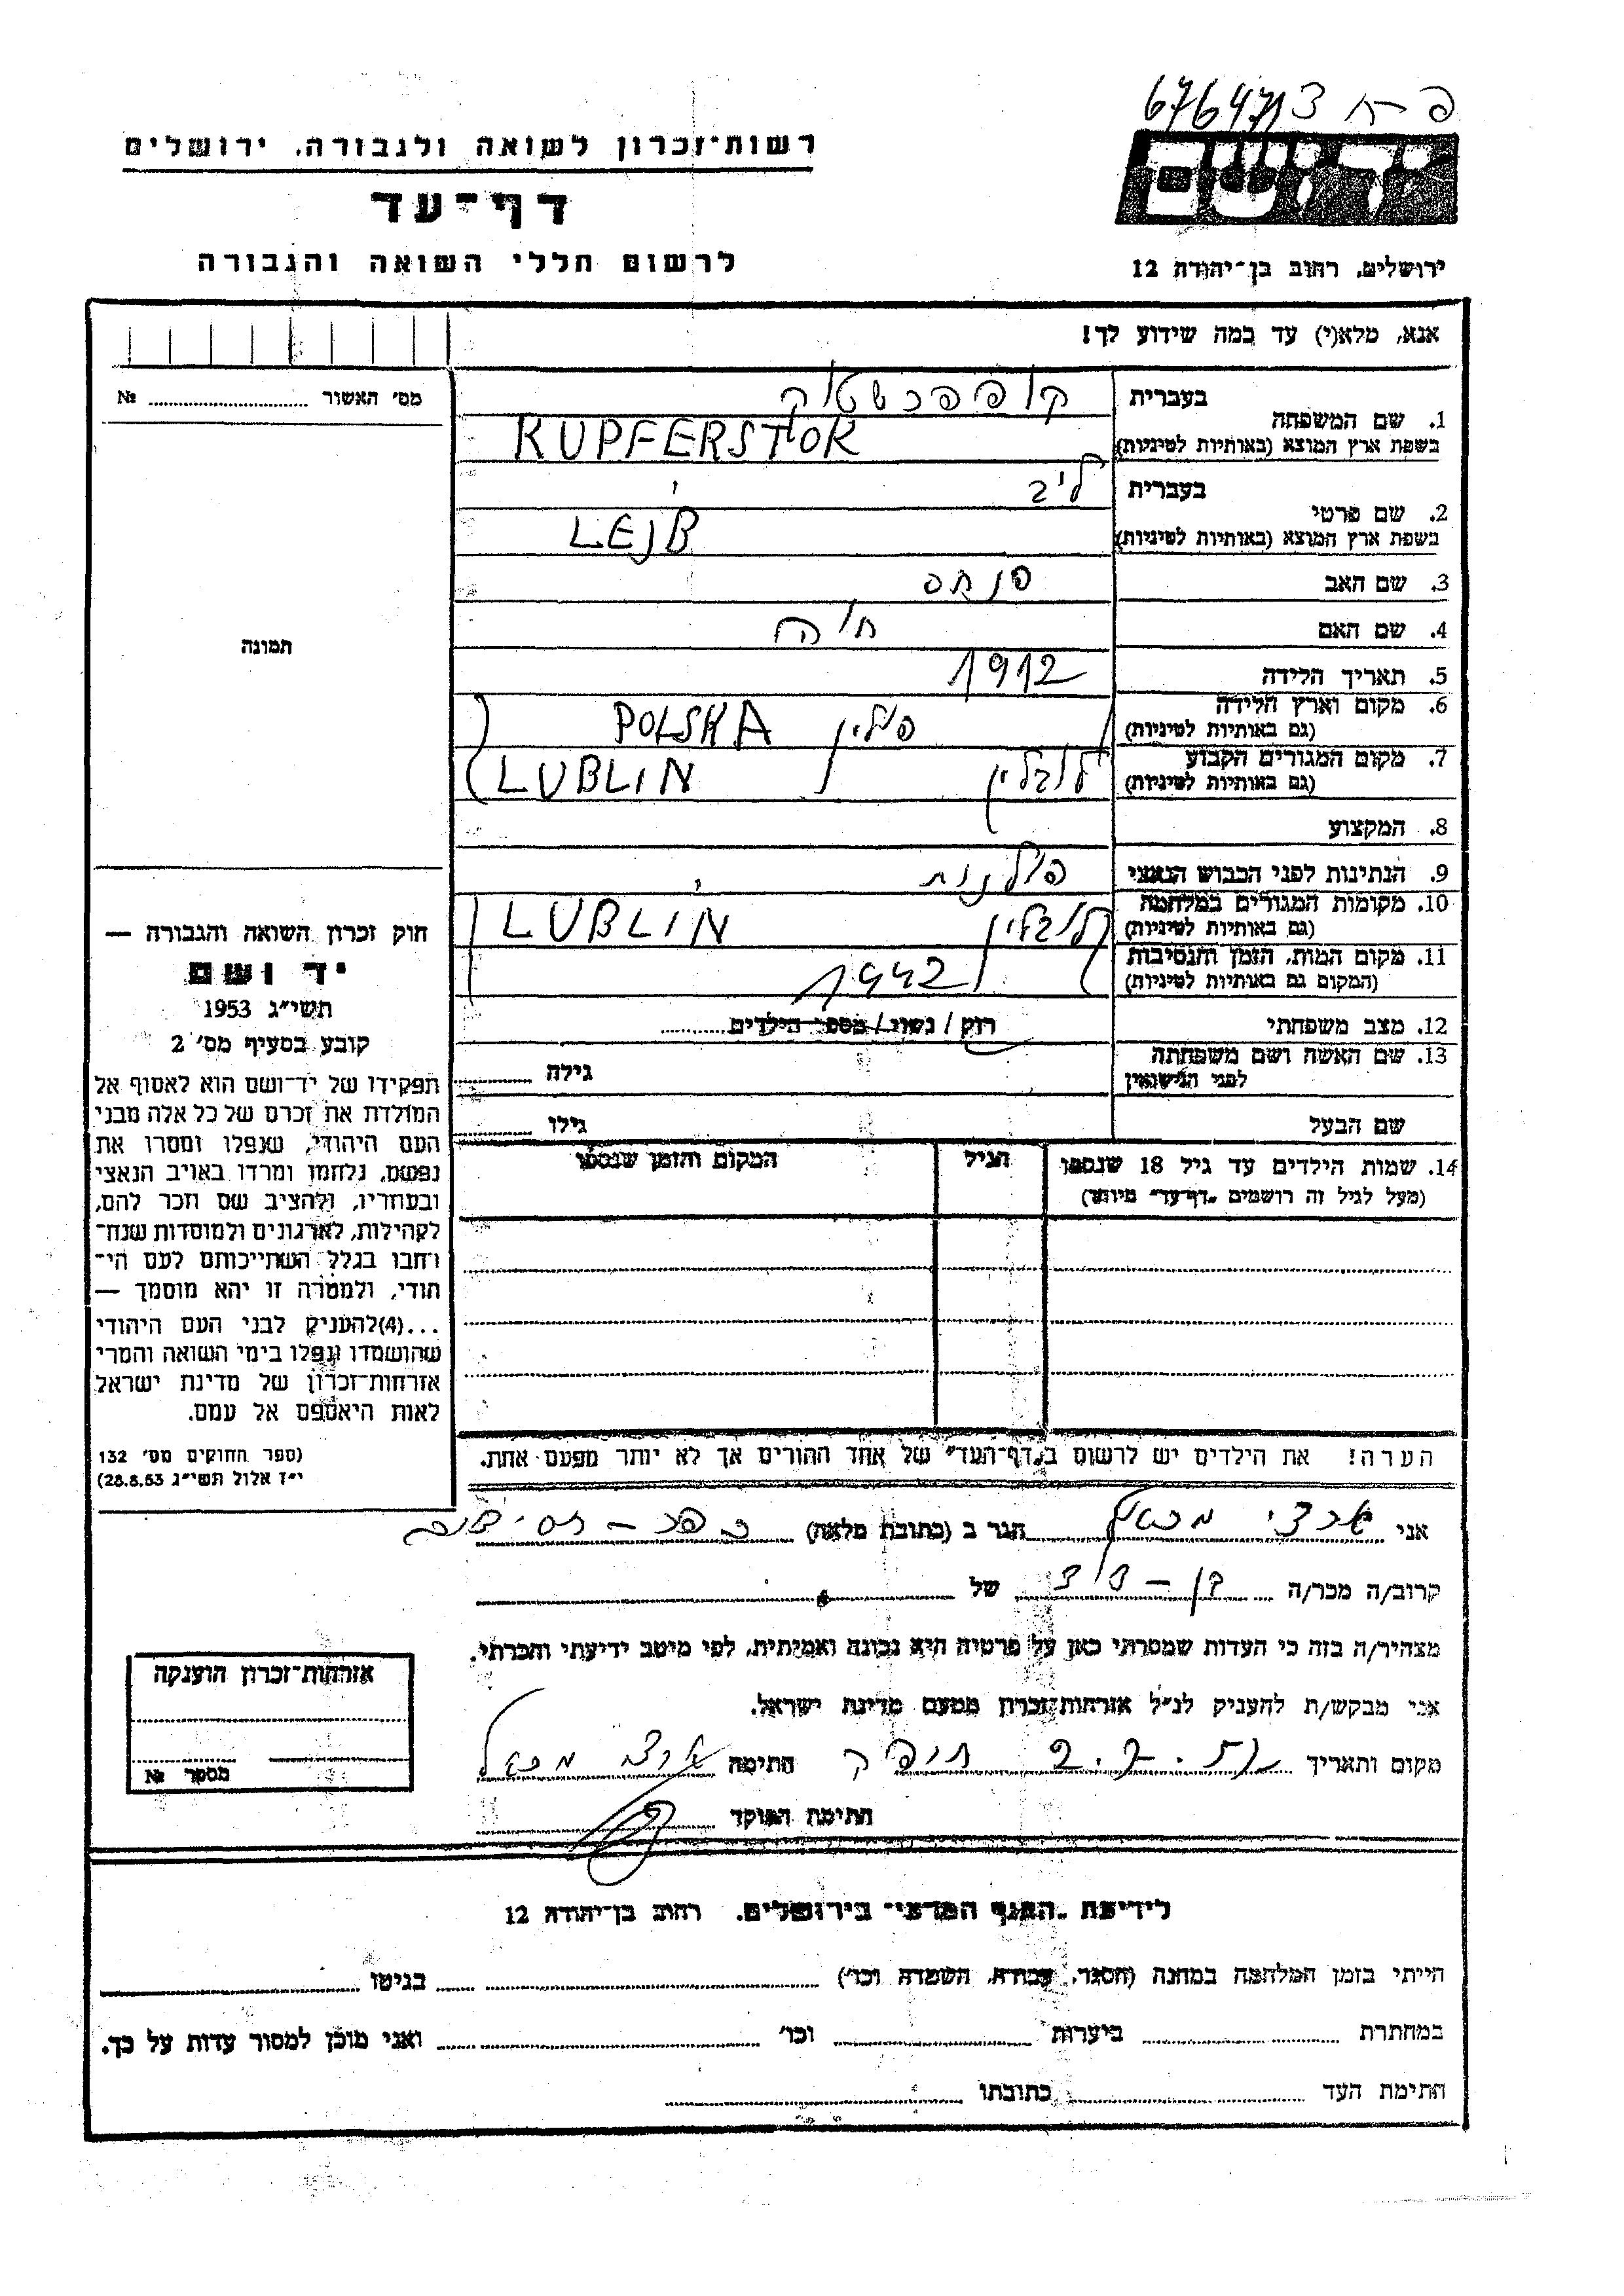 6764713 פ-ח
רשות־זכרון לשואה ולגבורה, ירושלים
דף־עד
לרשום חללי השואה והגבורה
ירושלים, רחוב בן־יהודה 12
אנא, מלא(י) עד כמה שידוע לך!
מס' האשור № 
1. שם המשפחה
בעברית קופפרשטוק
בשפת ארץ המוצא (באותיות לטיניות) KUPFERSTOK
2. שם פרטי
בעברית ליב
בשפת ארץ המוצא (באותיות לטיניות) LEJB
3. שם האב פנחס
4. שם האם חיה
5. תאריך הלידה 1912
6. מקום וארץ הלידה (גם באותיות לטיניות) פולין POLSKA
7. מקום המגורים הקבוע (גם באותיות לטיניות) לובלין LUBLIN
8. המקצוע
9. הנתינות לפני הכבוש הנאצי פולנית
10. מקומות המגורים במלחמה (גם באותיות לטיניות) לובלין LUBLIN
11. מקום המות, הזמן והנסיבות (המקום גם באותיות לטיניות) 1942
12. מצב משפחתי רוק / נשוי / מספר הילדים
13. שם האשה ושם משפחתה לפני הנישואין
גילה
שם הבעל
גילו
14. שמות הילדים עד גיל 18 שנספו
(מעל לגיל זה רושמים „דף־עד" מיוחד)
הגיל
המקום והזמן שנספו
הערה! את הילדים יש לרשום ב„דף־העד" של אחד ההורים אך לא יותר מפעם אחת.
תמונה
חוק זכרון השואה והגבורה —
יד ושם
תשי"ג 1953
קובע בסעיף מס' 2
תפקידו של יד־ושם הוא לאסוף אל
המולדת את זכרם של כל אלה מבני
העם היהודי, שנפלו ומסרו את
נפשם, נלחמו ומרדו באויב הנאצי
ובעוזריו, ולהציב שם וזכר להם,
לקהילות, לארגונים ולמוסדות שנח־
רבו בגלל השתייכותם לעם הי־
הודי, ולמטרה זו יהא מוסמך —
...(4)להעניק לבני העם היהודי
שהושמדו ונפלו בימי השואה והמרי
אזרחות־זכרון של מדינת ישראל
לאות היאספם אל עמם.
(ספר החוקים מס' 132
י"ז אלול תשי"ג 28.8.53)
אני ארצי מכאל הגר ב (כתובת מלאה) כפר - חסידים
קרוב/ה מכר/ה בן - דוד של
מצהיר/ה בזה כי העדות שמסרתי כאן על פרטיה היא נכונה ואמיתית, לפי מיטב ידיעתי והכרתי.
אני מבקש/ת להעניק לנ"ל אזרחות־זכרון מטעם מדינת ישראל.
מקום ותאריך חתימה
חתימת הפוקד
אזרחות־זכרון הוענקה
מספר №
לידיעת „הגוף המדעי" בירושלים, רחוב בן־יהודה 12
הייתי בזמן המלחמה במחנה (הסגר, עבודה, השמדה וכו') בגיטו
במחתרת ביערות וכו' ואני מוכן למסור עדות על כך.
חתימת העד כתובתו